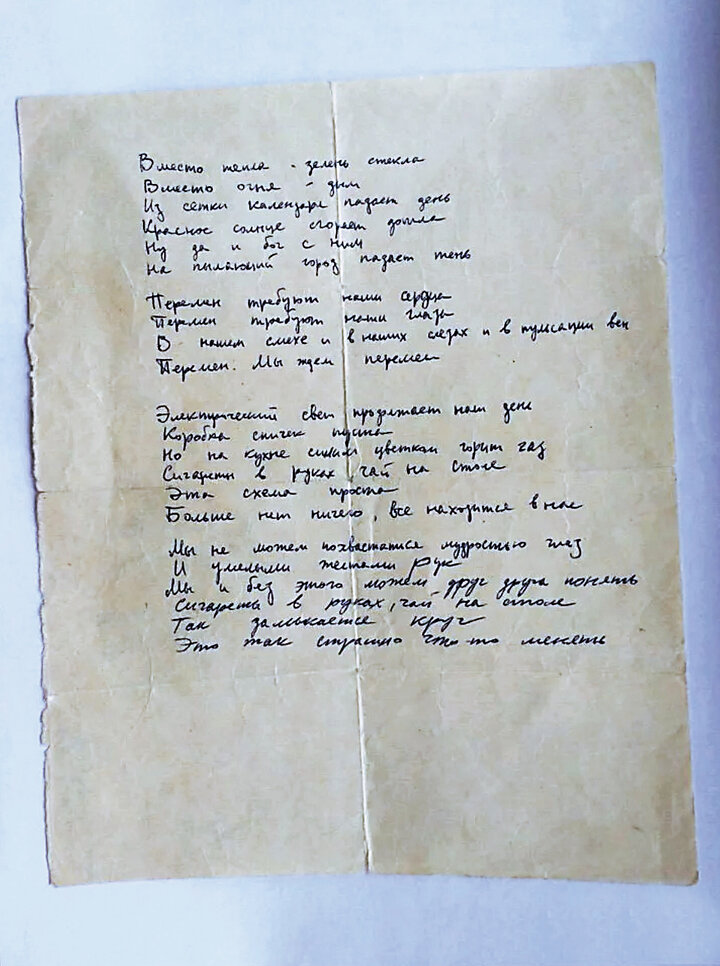 Вместо тепла - зелень стекла
Вместо огня - дым
Из сетки календаря падает день
Красное солнце сгорает дотла
Ну да и бог с ним
На пылающий город падает тень
Перемен требуют наши сердца
Перемен требуют наши глаза
В нашем смехе и в наших слезах и в пульсации вен
Перемен. Мы ждем перемен
Электрический свет продолжает наш день
Коробка спичек пуста
Но на кухне синим цветком горит газ
Сигареты в руках, чай на столе
Эта схема проста
Больше нет ничего, все находится в нас
Мы не можем похвастаться мудростью глаз
И умелыми жестами рук
Мы и без этого можем друг друга понять
Сигареты в руках, чай на столе
Так замыкается круг
Это так страшно что-то менять